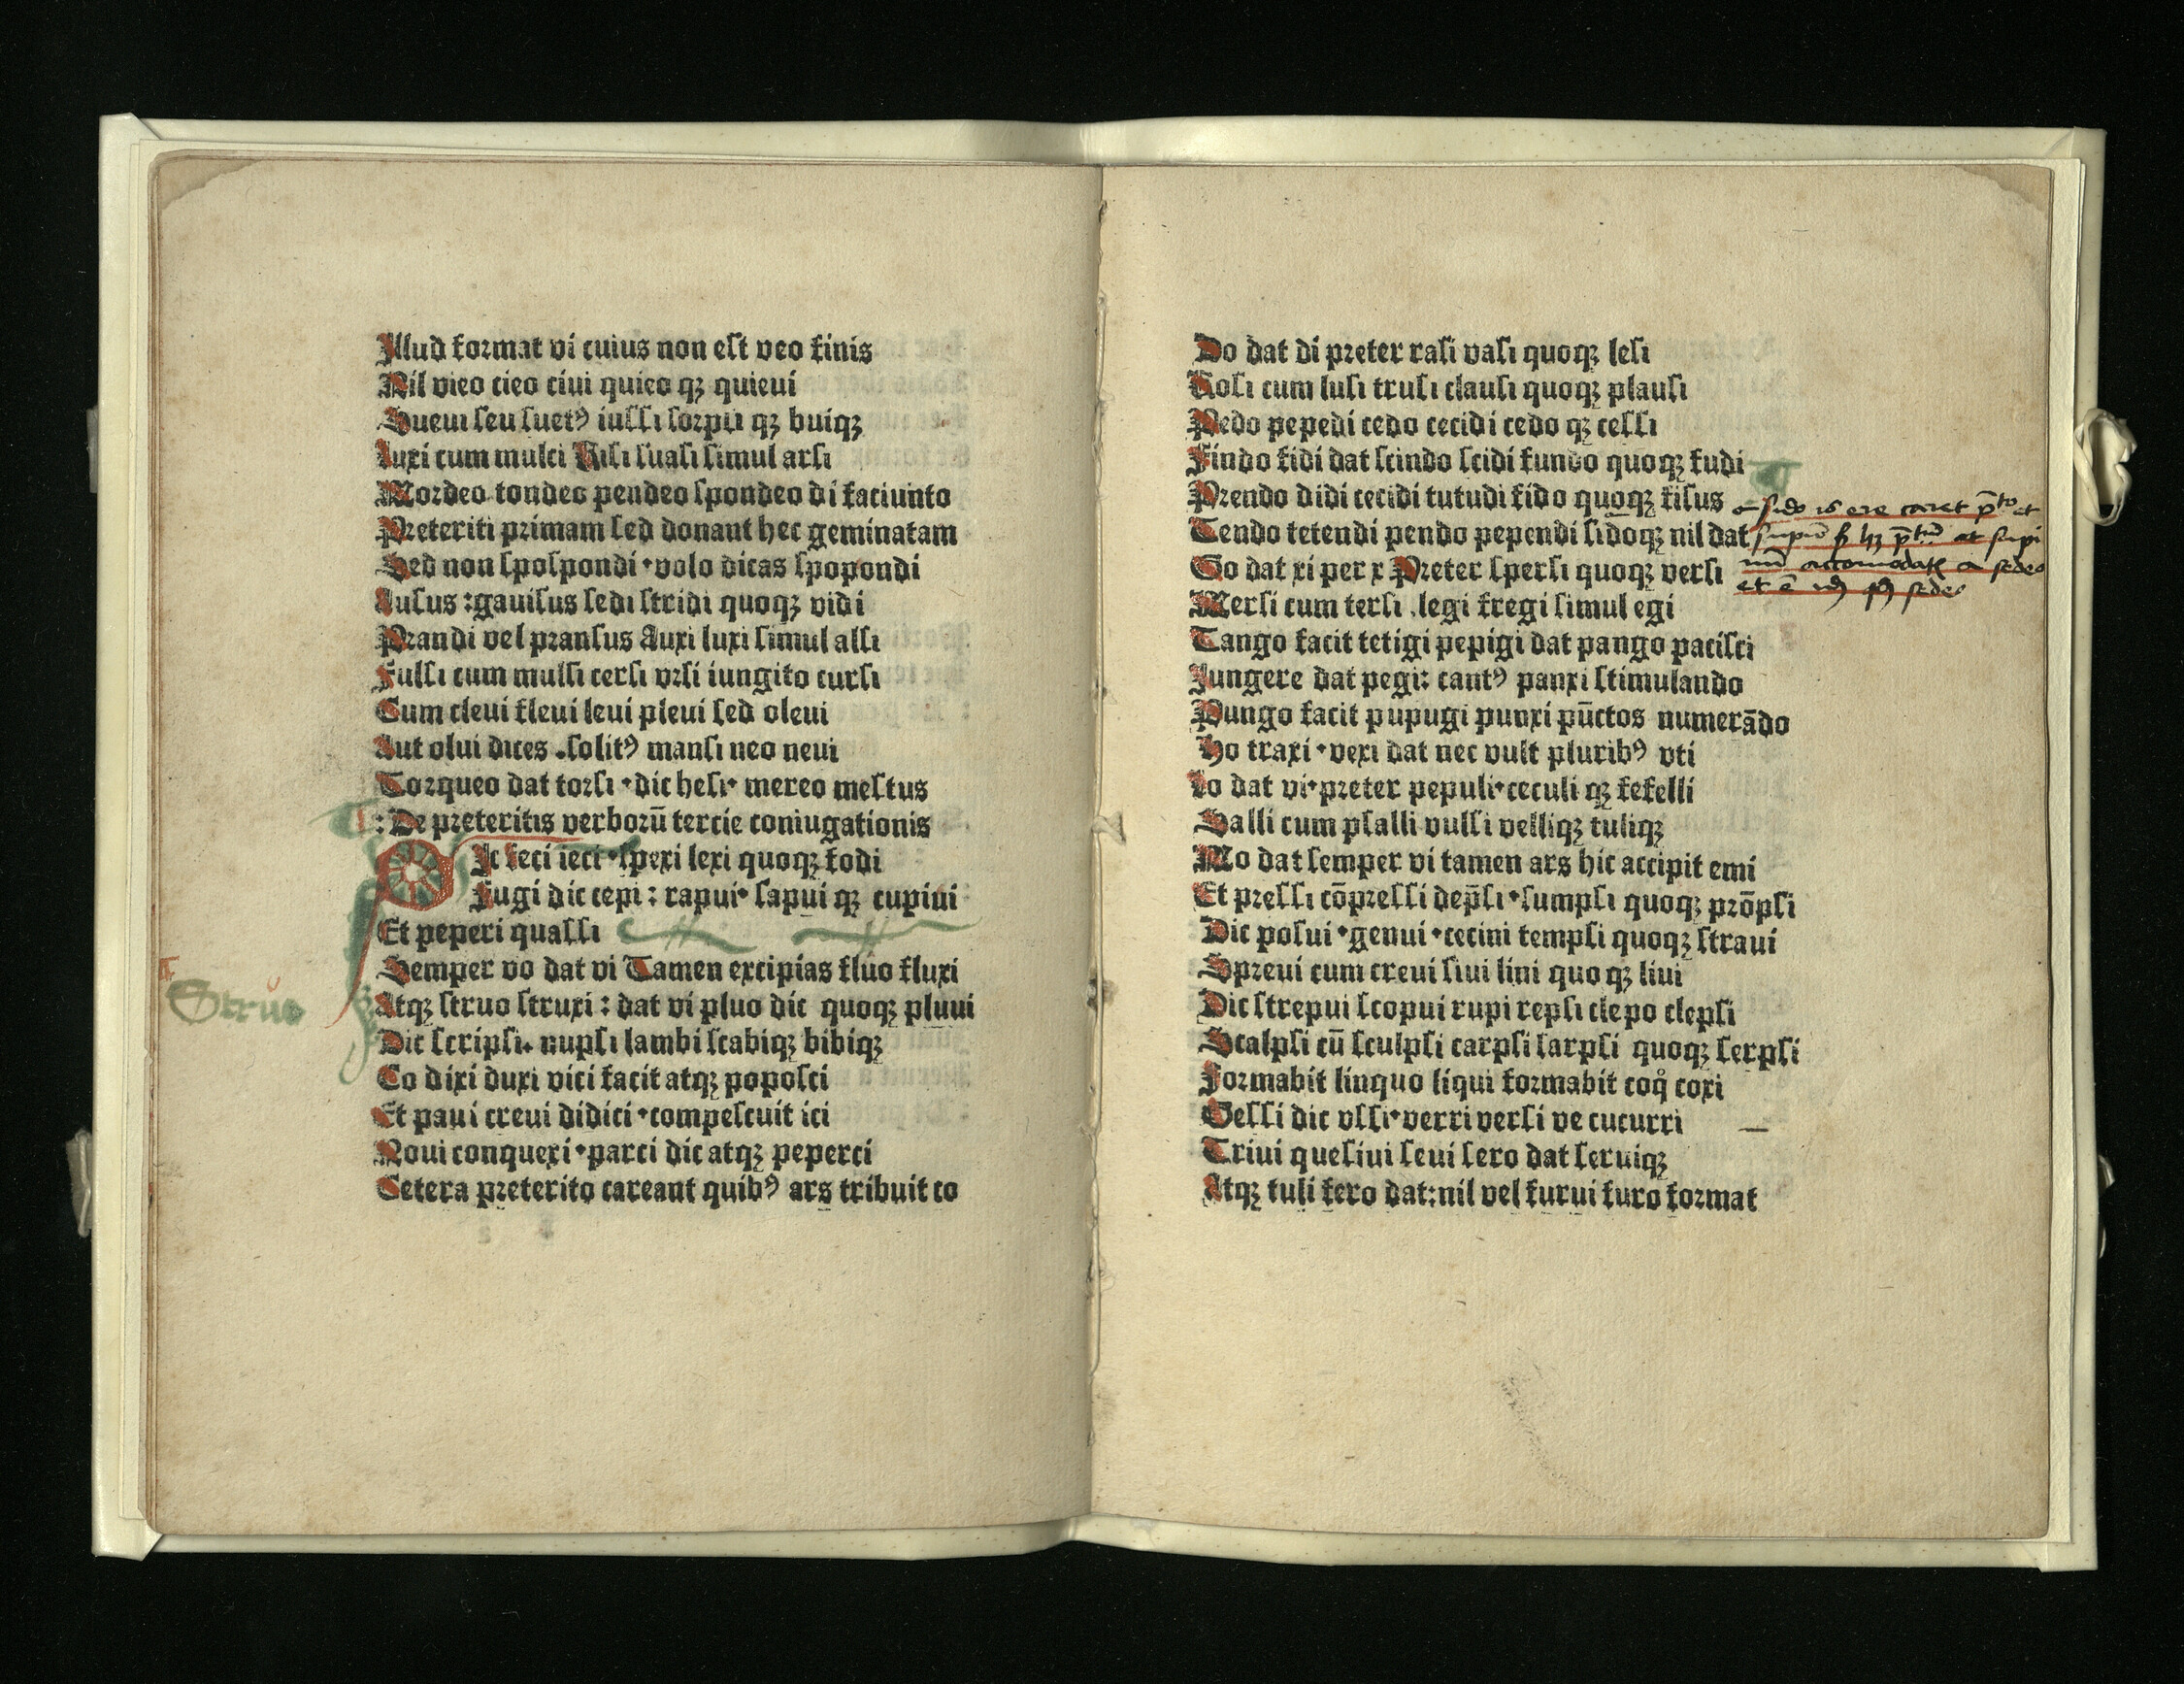 Illud format vi cuius non eſt veo finis
Nil vieo cieo ciui quieo qꝫ quieui
Sueui ſeu ſuetꝰ iuſſi ſorpſi qꝫ buiqꝫ
Luxi cum mulci Riſi ſuaſi ſimul arſi
Mordeo tondeo pendeo ſpondeo di faciunto
Preteriti primam ſed donant hec geminatam
Sed non ſpoſpondi · volo dicas ſpopondi
Auſus : gauiſus ſedi ſtridi quoqꝫ vidi
Prandi vel pranſus Auxi luxi ſimul alſi
Fulſi cum mulſi terſi vrſi iungito turſi
Cum cleui fleui leui pleui ſed oleui
Aut olui dices . ſolitꝰ manſi neo neui
Torqueo dat torſi · dic heſi · mereo meſtus
: De preteritis verborū tercie coniugationis
Ic feci ieci · ſpexi lexi quoqꝫ fodi
Fugi dic cepi : rapui · ſapui qꝫ cupiui
Et peperi quaſſi
Semper vo dat vi Tamen excipias fluo fluxi
Struo
Atqꝫ ſtruo ſtruxi : dat vi pluo dic quoqꝫ pluui
Dic ſcripſi . nupſi lambi ſcabiqꝫ bibiqꝫ
Co dixi duxi vici facit atqꝫ popoſci
Et paui creui didici · compeſcuit ici
Noui conquexi · parci dic atqꝫ peperci
Cetera preterito careant quibꝰ ars tribuit co
Do dat di preter raſi vaſi quoqꝫ leſi
Roſi cum luſi truſi clauſi quoqꝫ plauſi
Pedo pepedi cedo cecidi cedo qꝫ ceſſi
Findo fidi dat ſcindo ſcidi fundo quoqꝫ fudi
Prendo didi cecidi tutudi fido quoqꝫ fiſus
Tendo tetendi pendo pependi ſidoqꝫ nil dat
Go dat xi per x Preter ſperſi quoqꝫ verſi
ſido is ere caret
et ſupi
ſedeo
Merſi cum terſi . legi fregi ſimul egi
Tango facit tetigi pepigi dat pango paciſci
Jungere dat pegi : cantꝰ panxi ſtimulando
Pungo facit pupugi punxi pūctos numerādo
Ho traxi · vexi dat nec vult pluribꝰ vti
Lo dat vi · preter pepuli · ceculi qꝫ fefelli
Salli cum pſalli vulſi velliqꝫ tuliqꝫ
Mo dat ſemper vi tamen ars hic accipit emi
Et preſſi cōpreſſi dep̄ſi · ſumpſi quoqꝫ prōpſi
Dic poſui · genui · cecini tempſi quoqꝫ ſtraui
Spreui cum creui ſiui lini quo qꝫ liui
Dic ſtrepui ſcopui rupi repſi clepo clepſi
Scalpſi cū ſculpſi carpſi ſarpſi quoqꝫ ſerpſi
Formabit linquo liqui formabit coqͦ coxi
Geſſi dic vſſi · verri verſi ve cucurri
Triui queſiui ſeui ſero dat ſeruiqꝫ
Atqꝫ tuli fero dat : nil vel furui furo format